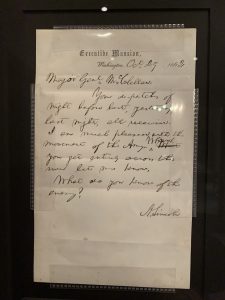 Executive Mansion,
Washington, Oct. 29, 1862
Major Genl. McClellan
Your dispatches of
night before last, yesterday &
last night, all received.
I am much pleased with the
movement of the Army. When
you get entirely across the
river let me know.
What do you know of the
enemy?
A. Lincoln